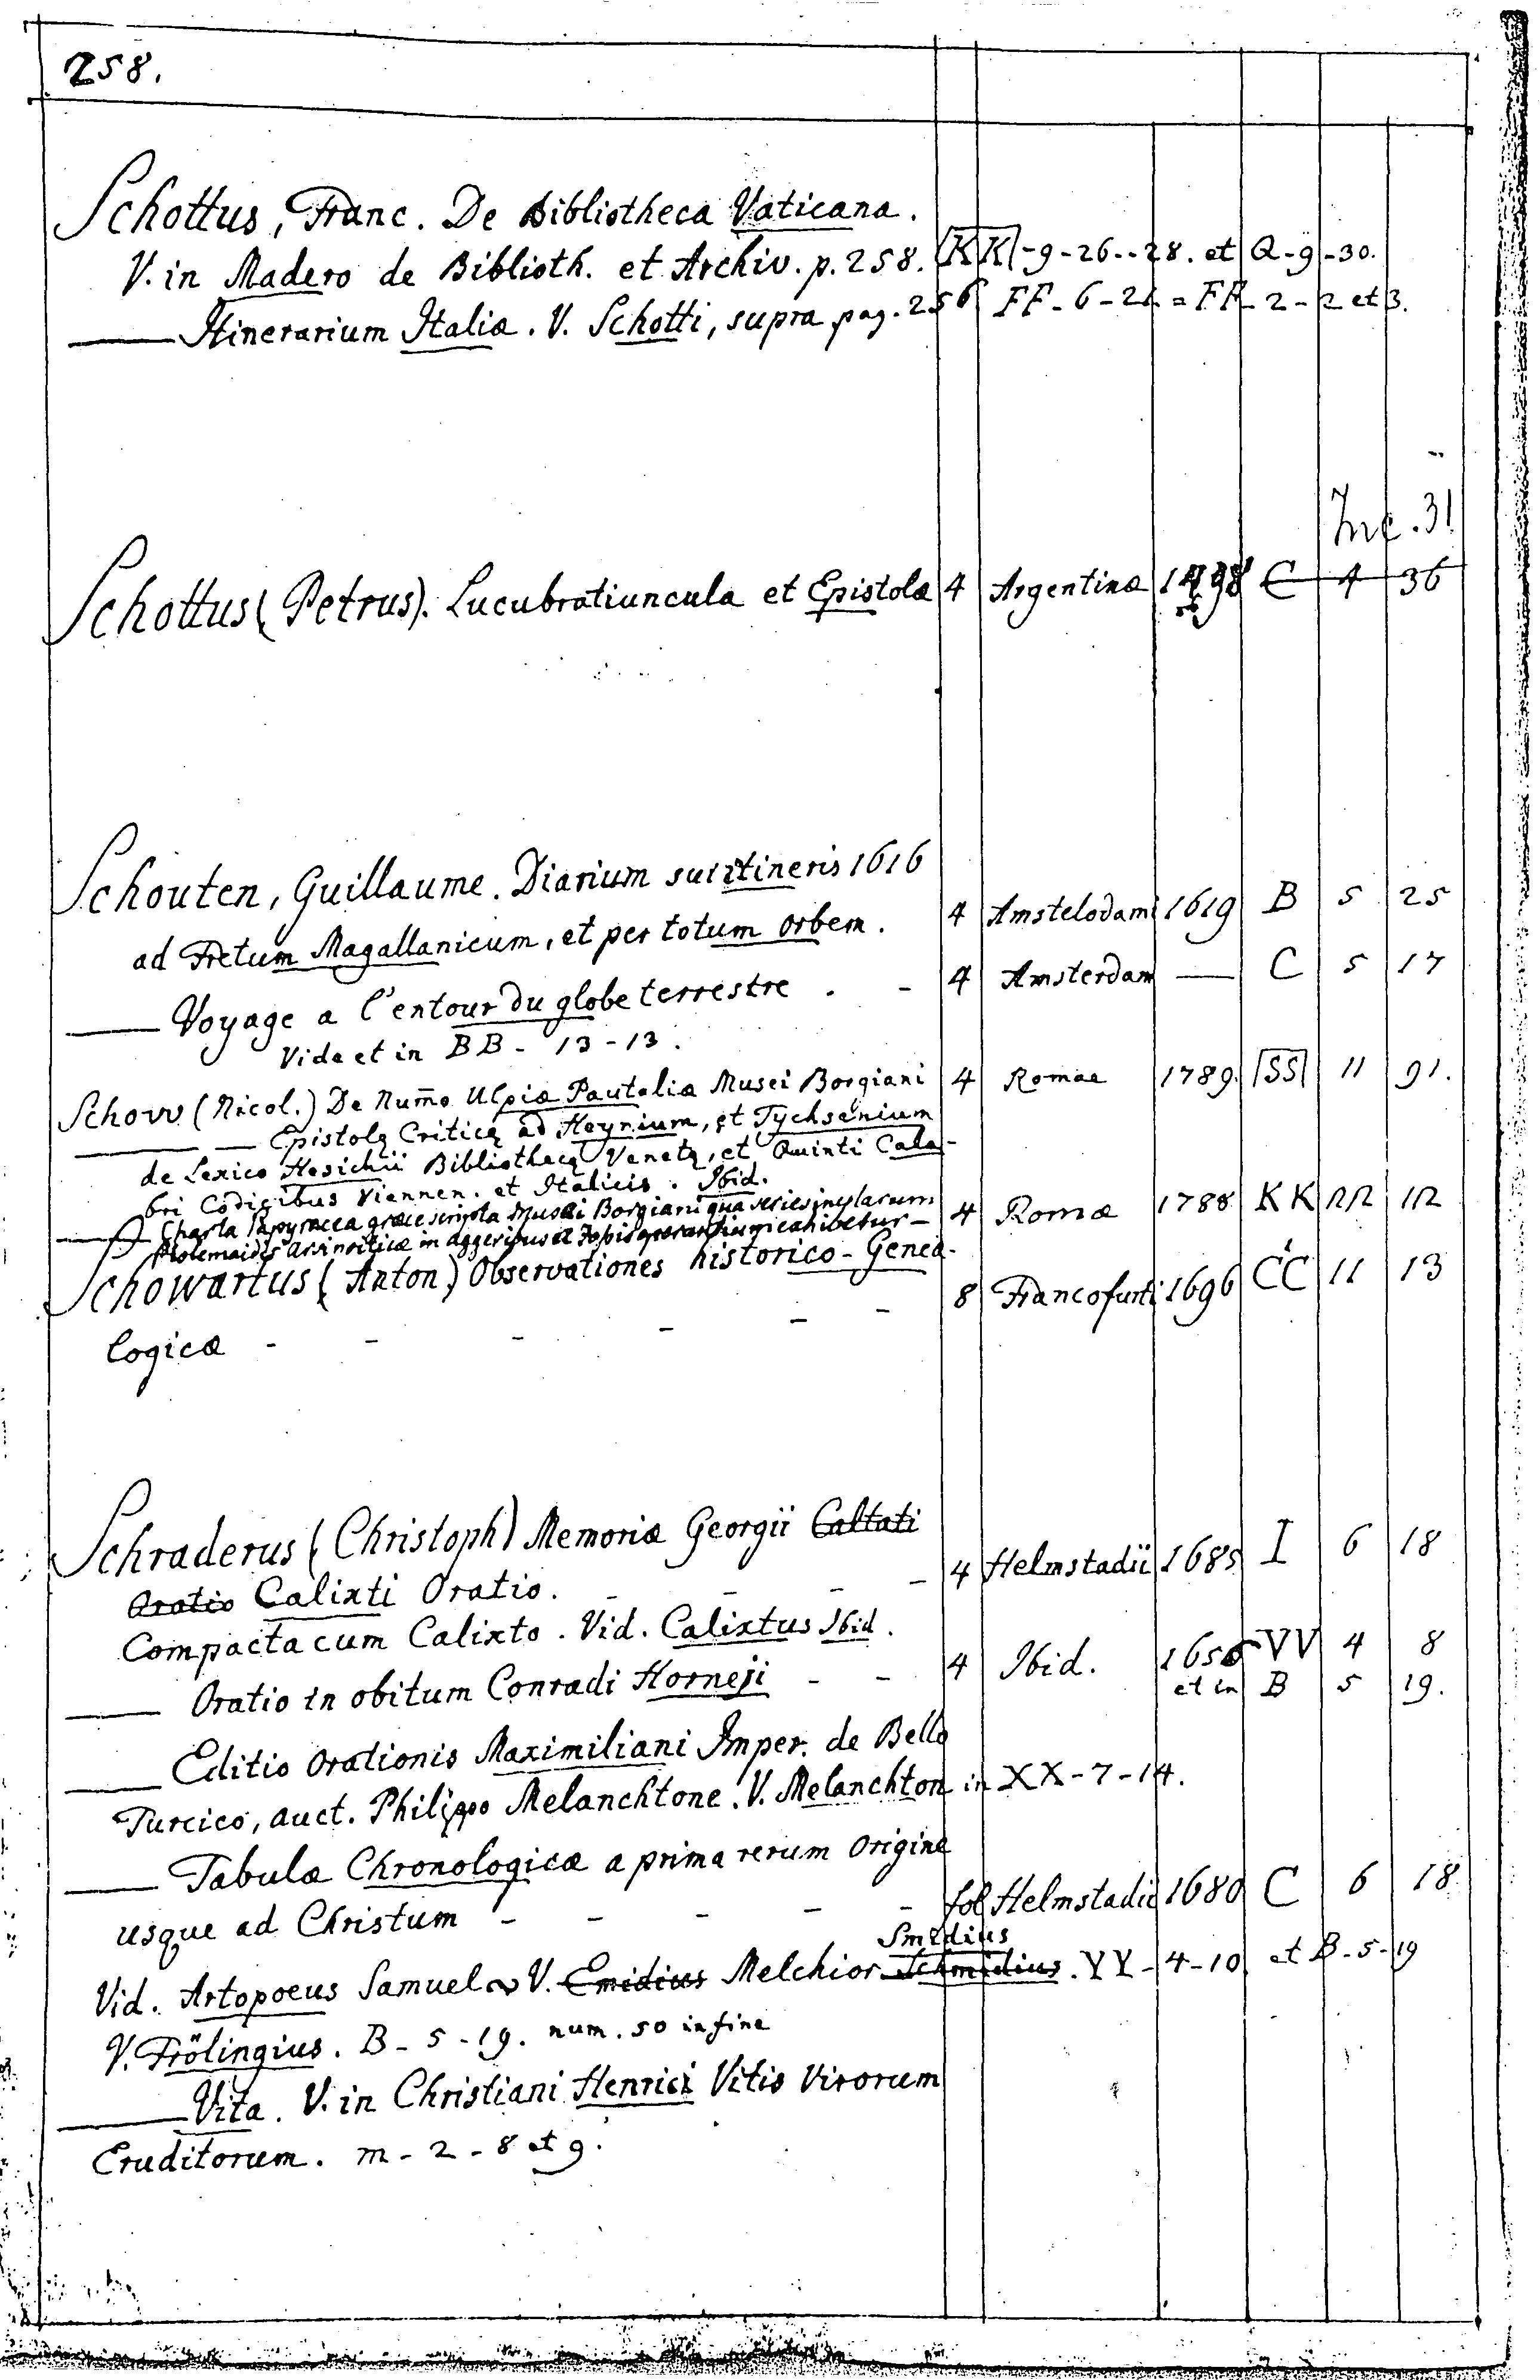 258.
Schottus, Franc. De Bibliotheca Vaticana.
V. in Madero de Biblioth. et Archiv. p. 258. KK - 9 - 26 - - 28. et Q - 9 - 30.
—— Itinerarium Italiæ. V. Schotti, supra pag. 256 FF - 6 - 21 = FF - 2 - 2 et 3.
Inc. 31
Schottus (Petrus). Lucubratiuncula et Epistolæ 4 Argentinæ 1498 C 4 36
Schouten, Guillaume. Diarium sui itineris 1616
ad Fretum Magallanicum, et per totum orbem. 4 Amstelodami 1619 B 5 25
—— Voyage a l'entour du globe terrestre . - 4 Amsterdam —— C 5 17
Vide et in BB - 13 - 13.
Schow (Nicol.) De Num̄o Ulpiæ Pautaliæ Musei Borgiani 4 Romae 1789. SS 11 91.
—— —— Epistolę Criticę ad Heynium, et Tychsenium
de Lexico Hesichii Bibliothecę Venetę, et Quinti Cala-
bri Codicibus Viennen. et Italicis. Ibid.
—— Charta Papyracea græce scripta Musei Borgiani qua series incolarum
Ptolemaidis Arsinoiticæ in aggeribus et fossis operantium exhibetur - 4 Romæ 1788 KK 22 12
Schowartus (Anton) Observationes historico - Genea-
logicæ - - - - - - 8 Francofurti 1696 CC 11 13
Schraderus (Christoph) Memoriæ Georgii Caltati
Oratio Calixti Oratio. - - - - 4 Helmstadii 1685 I 6 18
Compacta cum Calixto. Vid. Calixtus Ibid.
—— Oratio in obitum Conradi Horneji - - 4 Ibid. 1650 VV 4 8
et in B 5 19.
—— Editio Orationis Maximiliani Imper. de Bello
Turcico, auct. Philippo Melanchtone. V. Melanchton in XX - 7 - 14.
—— Tabulæ Chronologicæ a prima rerum origine
usque ad Christum - - - - - fol Helmstadii 1680 C 6 18
Smidius
Vid. Artopoeus Samuel V. Emidius Melchior Schmidius. YY - 4 - 10 et B - 5 - 19
V. Frölingius. B - 5 - 19. num. 50 in fine
—— Vita. V. in Christiani Henrici Vitis Virorum
Eruditorum. m - 2 - 8 et 9.